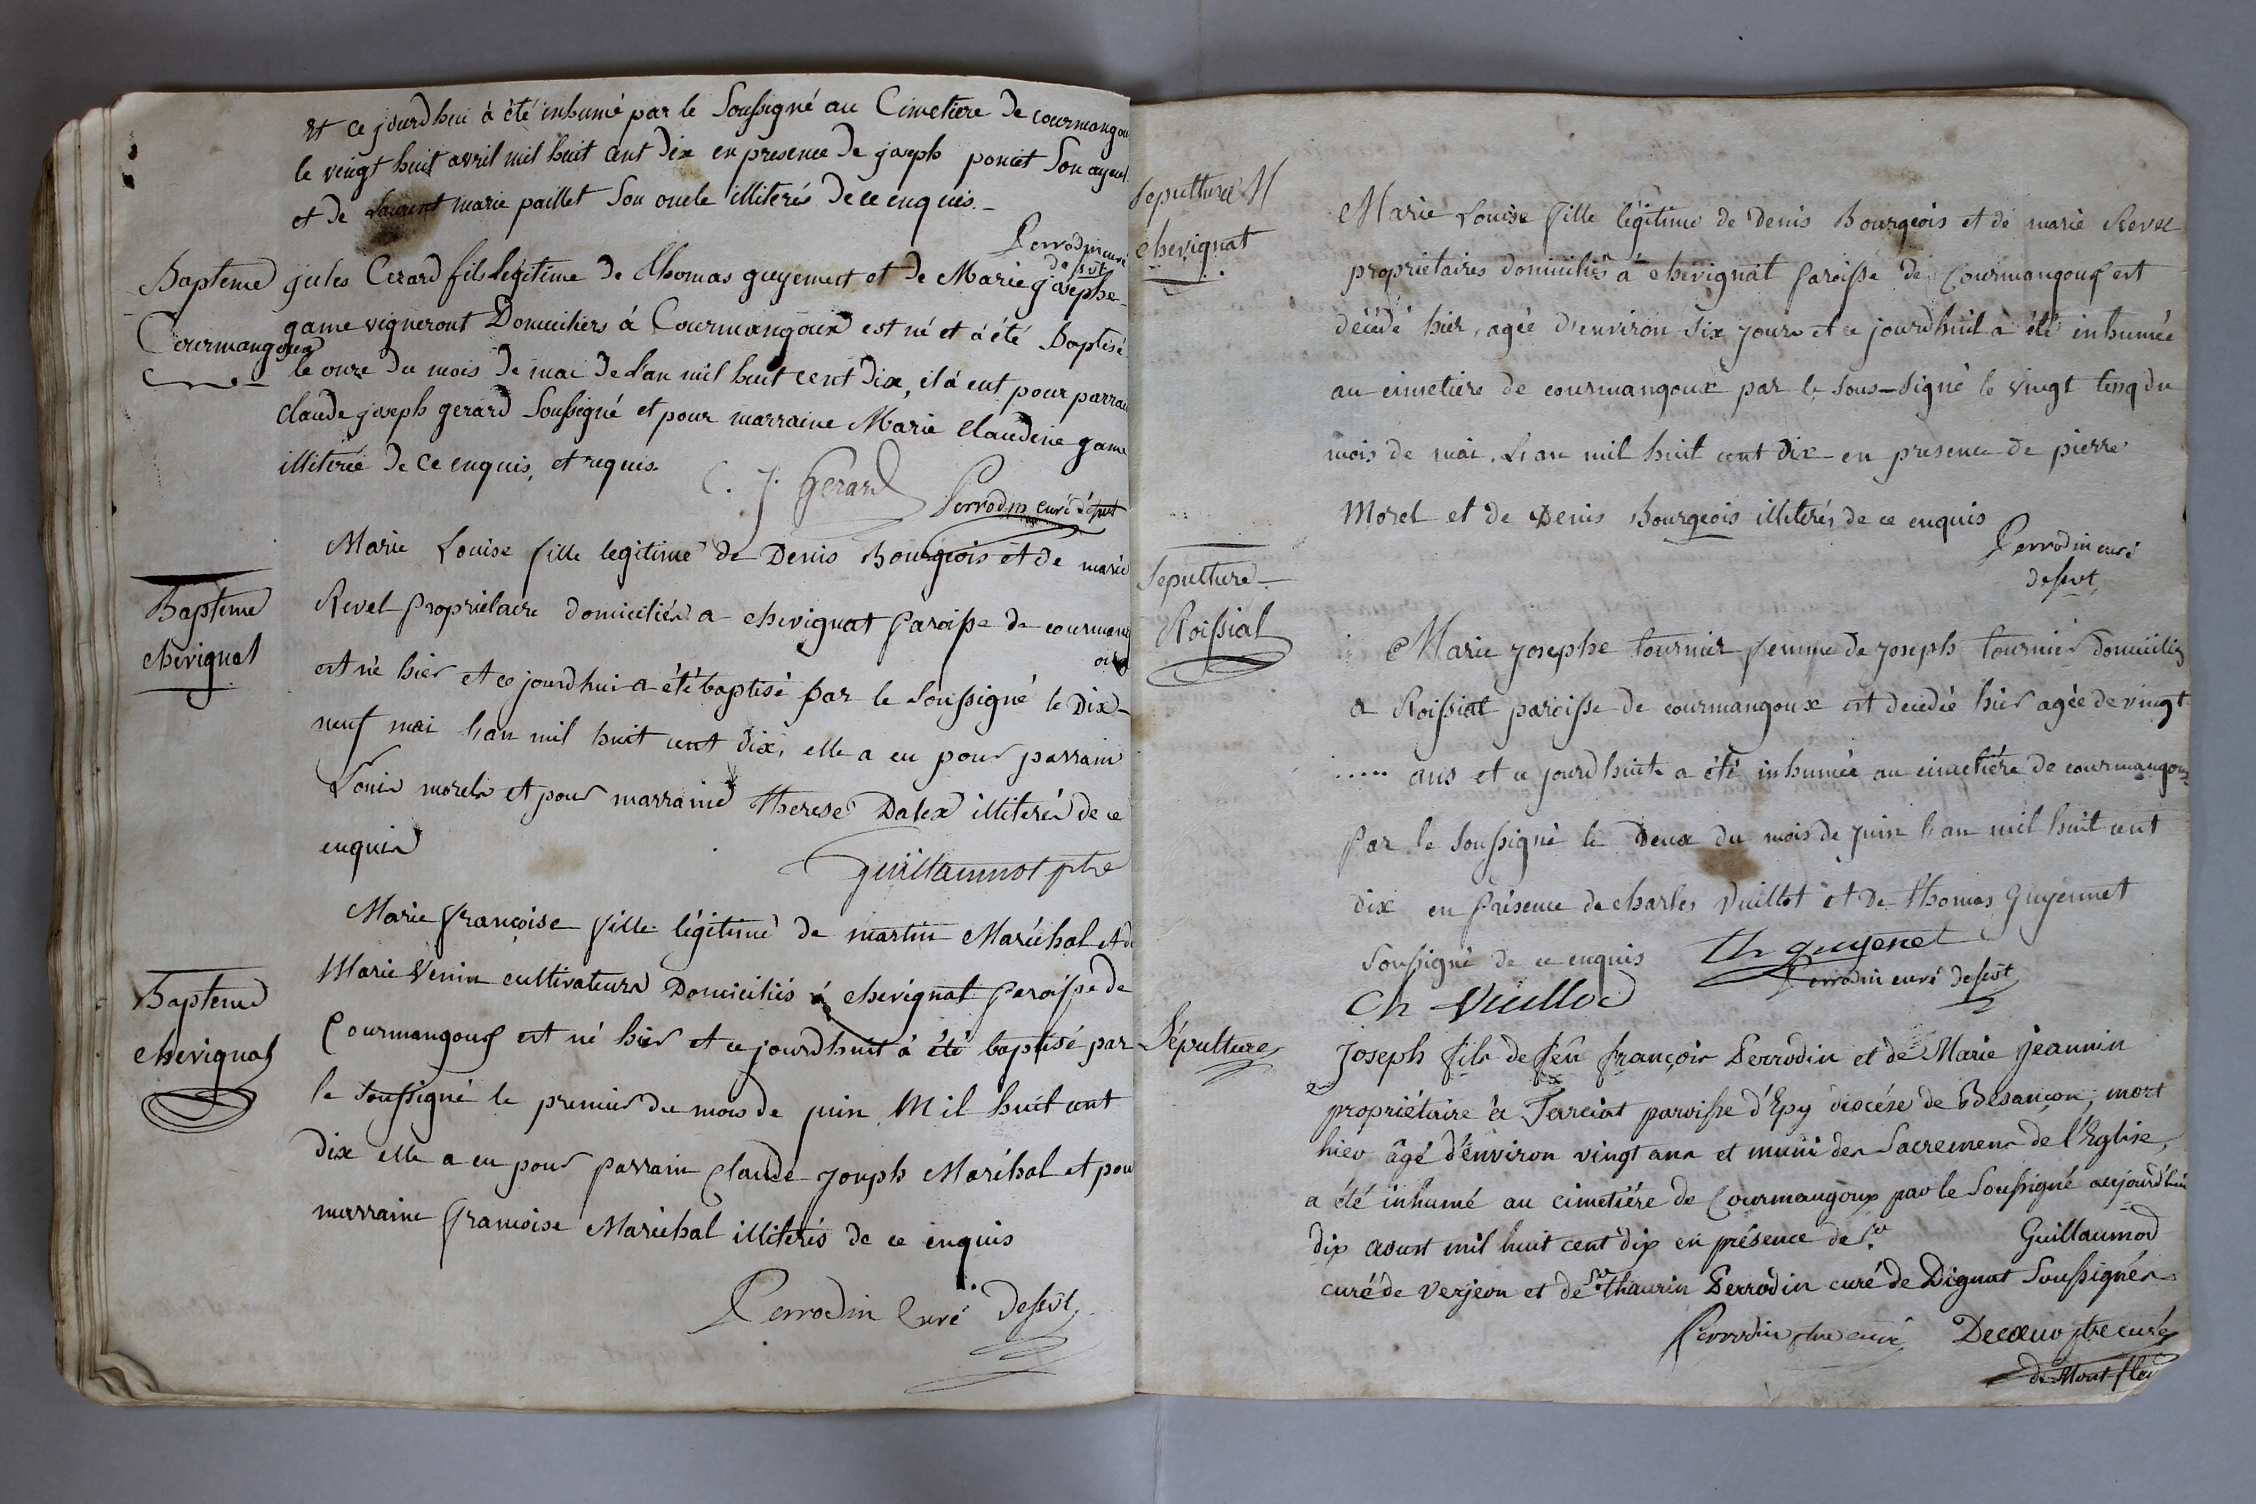 Et ce jourdhui à été inhumé par le Soussigné au Cimetiere de courmangou
le vingt huit avril mil huit cent dix en presence de joseph poncet Son ayeul
et de Laurent marie paillet Son oncle illiterés de ce enquis.
Perrodin curé
desevt
Bapteme
Courmangoux
jules Cerard fils legitime de thomas guyennet et de Marie josephe
game vigneront Domiciliers à Courmangoux est né et à été Baptisé
le onze du mois de mai de L'an mil huit cent dix, il à eut pour parrain
claude joseph gerard Soussigné et pour marraine Marie Claudine game
illiterée de ce enquis, et requis.
C. J. Gerard
Perrodin curé dessevt
Bapteme
chevignat
Marie Louise fille legitime de Denis Bourgeois et de marie
Revel proprietaire domiciliés a chevignat paroisse de courmang
oux
est né hier et ce jourdhui a été baptisé par le soussigné le Dix-
neuf mai L'an mil huit cent dix, elle a eu pour parrain
Louis morel et pour marraine therese Dalex illiterés de ce
enquis
guillaumot ptre
Bapteme
chevignat
Marie françoise fille légitime de martin Maréchal et de
Marie Venin cultivateurs Domiciliés á chevignat paroisse de
Courmangoux est né hier et ce jourdhuit à été baptisé par
le soussigné le premier du mois de juin Mil huit cent
dix elle a eu pour parrain Claude joseph Maréhal et pour
marraine françoise Maréchal illiterés de ce enquis
Perrodin Curé dessevt
Sepulture
chevignat
Marie Louise fille légitime de Denis Bourgeois et de marie Revel
proprietaires domiciliés á chevignat paroisse de Courmangoux est
décédé hier, agée d'environ six jours et ce jourdhuit a été inhumée
au cimetière de courmangoux par le sous-signé le vingt cinq du
mois de mai. L'an mil huit cent dix en presence de pierre
Morel et de Denis Bourgeois illiterés de ce enquis
Perrodin curé
dessevt
Sepulture
Roissiat
Marie josephe tournier femme de joseph tournier domiciliés
a Roissiat paroisse de courmangoux est decedée hier agée de vingt
..... ans et ce jourdhuit a été inhumée au cimetiére de courmangoux
par le soussigné le Deux du mois de juin L'an mil huit cent
dix en présence de charles Vuillot et de thomas Guyennet
soussigné de ce enquis
th guyenet
Perrodin curé dessevt
Ch Vuillod
Sépulture
Joseph fils de feu françois Perrodin et de Marie Jeannin
propriétaire à Tarciat paroisse d'Epy diocése de Besançon, mort
hier âgé d'environ vingt ans et muni des Sacremens de l'Eglise,
a été inhumé au cimetiére de Courmangoux par le Soussigné aujourd'hui
dix aoust mil huit cent dix en présence de Sr Guillaumod
curé de Verjeon et de Sr thaurin Perrodin curé de Dignat Soussignés
Perrodin ptre curé
Decoeur ptre curé
de Montfleur